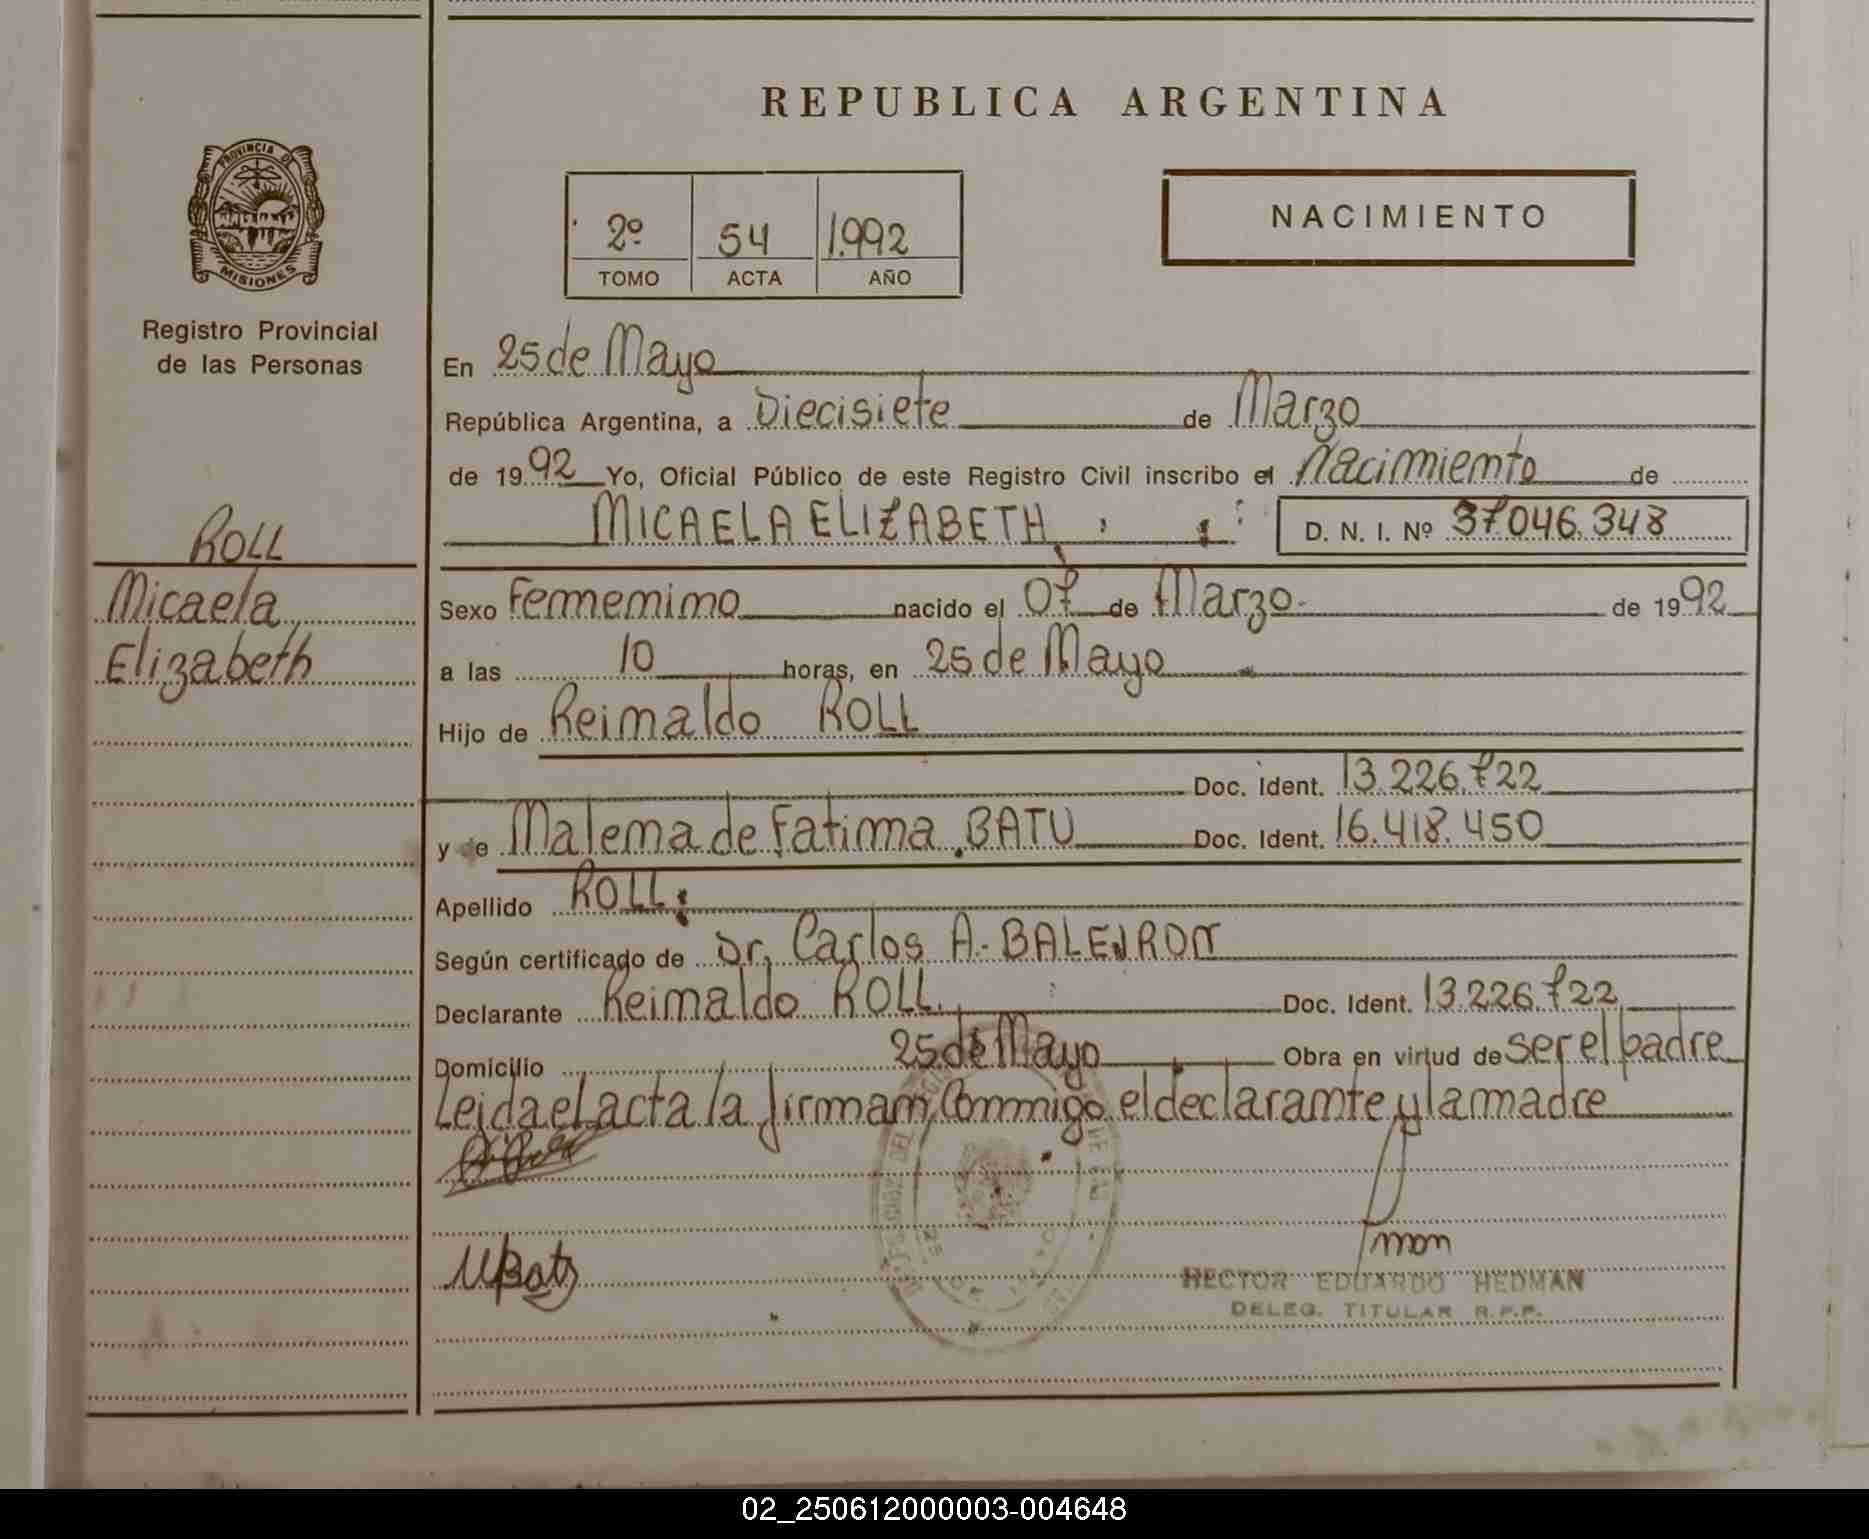 REPUBLICA ARGENTINA
PROVINCIA DE
MISIONES
Registro Provincial
de las Personas
ROLL
Micaela
Elizabeth
2º 54 1.992
TOMO ACTA AÑO
NACIMIENTO
En 25 de Mayo
República Argentina, a Diecisiete de Marzo
de 1992 Yo, Oficial Público de este Registro Civil inscribo el Nacimiento de
MICAELA ELIZABETH D. N. I. Nº 37.046.348
Sexo Femenino nacido el 07 de Marzo de 1992
a las 10 horas, en 25 de Mayo
Hijo de Reinaldo ROLL
Doc. Ident. 13.226.722
y de Malena de Fatima BATU Doc. Ident. 16.418.450
Apellido ROLL
Según certificado de Dr. Carlos A. BALEJRON
Declarante Reinaldo ROLL Doc. Ident. 13.226.722
Domicilio 25 de Mayo Obra en virtud de ser el padre
Leida el acta la firman Conmigo el declarante y la madre
HECTOR EDUARDO HEDMAN
DELEG. TITULAR R.P.P.
02_250612000003-004648